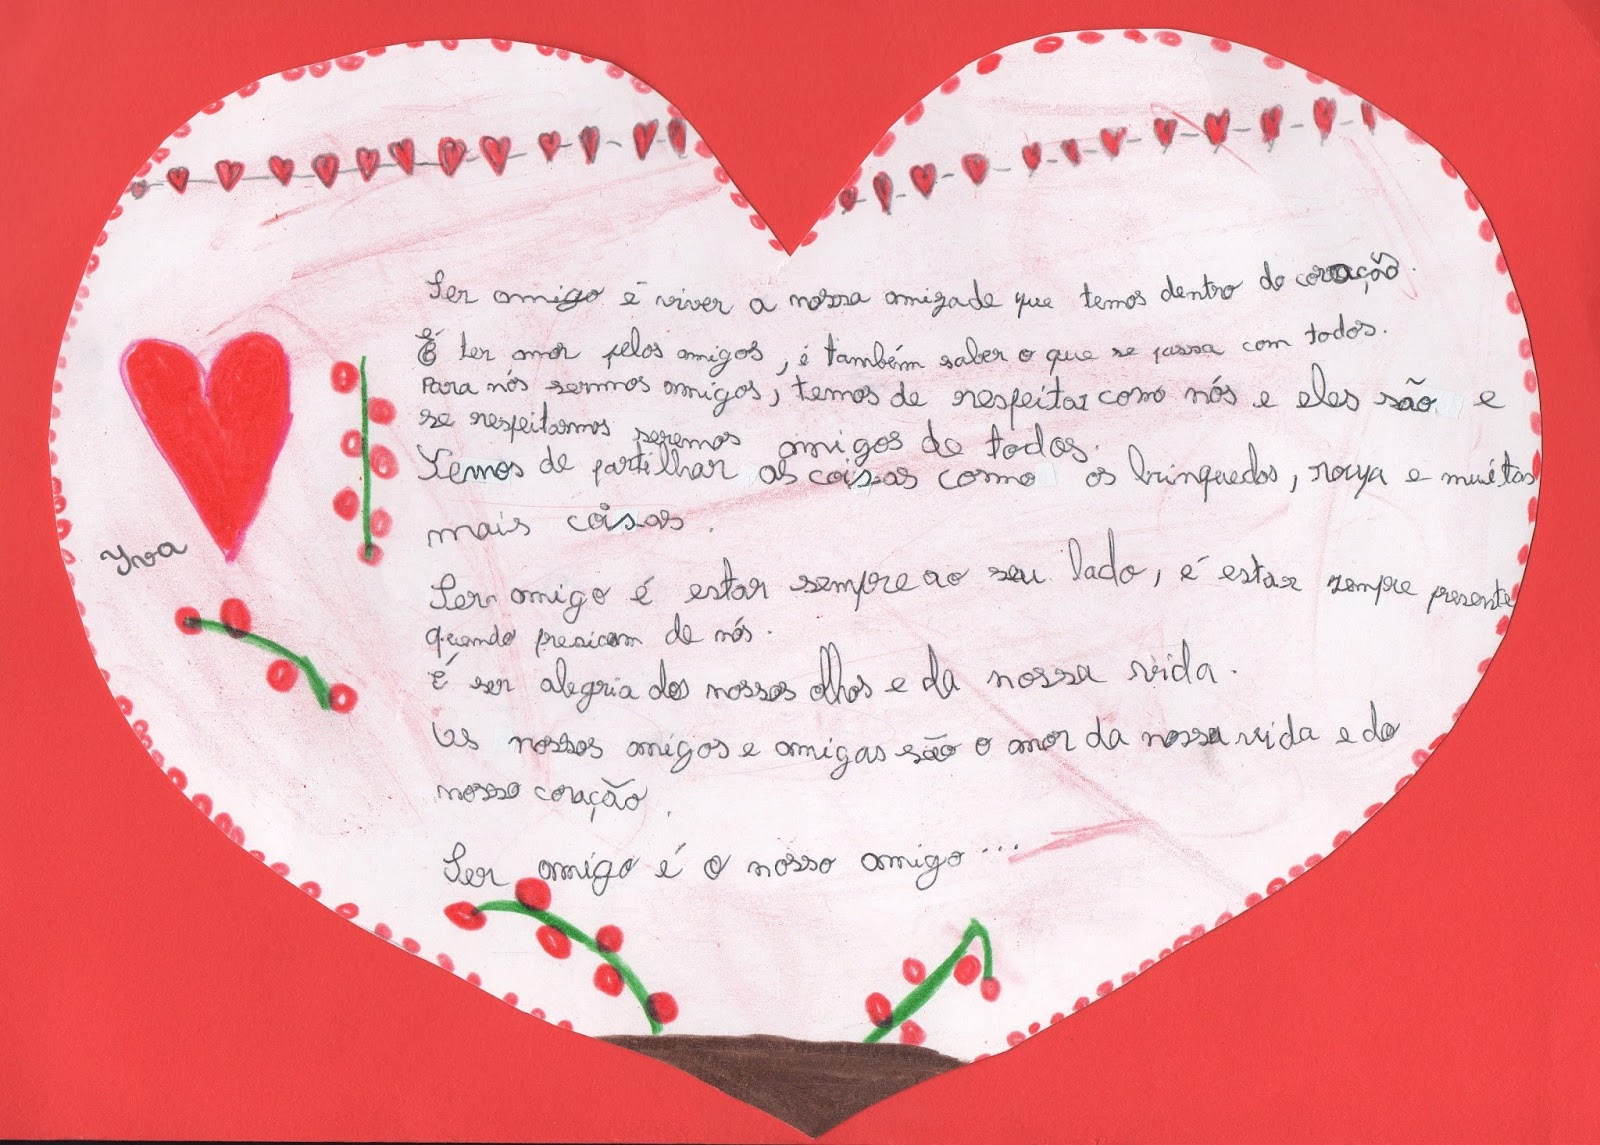 Ser amigo é viver a nossa amizade que temos dentro do coração.
É ter amor pelos amigos, é também saber o que se passa com todos.
Para nós sermmos amigos, temos de respeitar como nós e eles são e
se respeitarmos seremos amigos de todos.
Temos de partilhar as coisas como os brinquedos, roupa e muitas
mais coisas.
Ser amigo é estar sempre ao seu lado, é estar sempre presente
quando presicam de nós.
É ser alegria dos nossos olhos e da nossa vida.
Os nossos amigos e amigas são o amor da nossa vida e do
nosso coração.
Ser amigo é o nosso amigo...
Iva